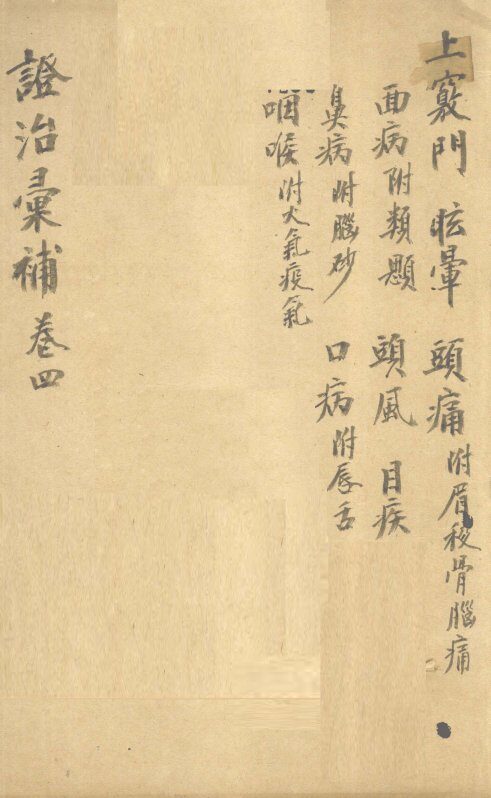 上竅門 眩暈 頭痛附眉稜骨腦痛
面病附類顋 頭風 目疾
鼻病附腦砂 口病附唇舌
咽喉附火氣疫氣
證治彙補 卷四